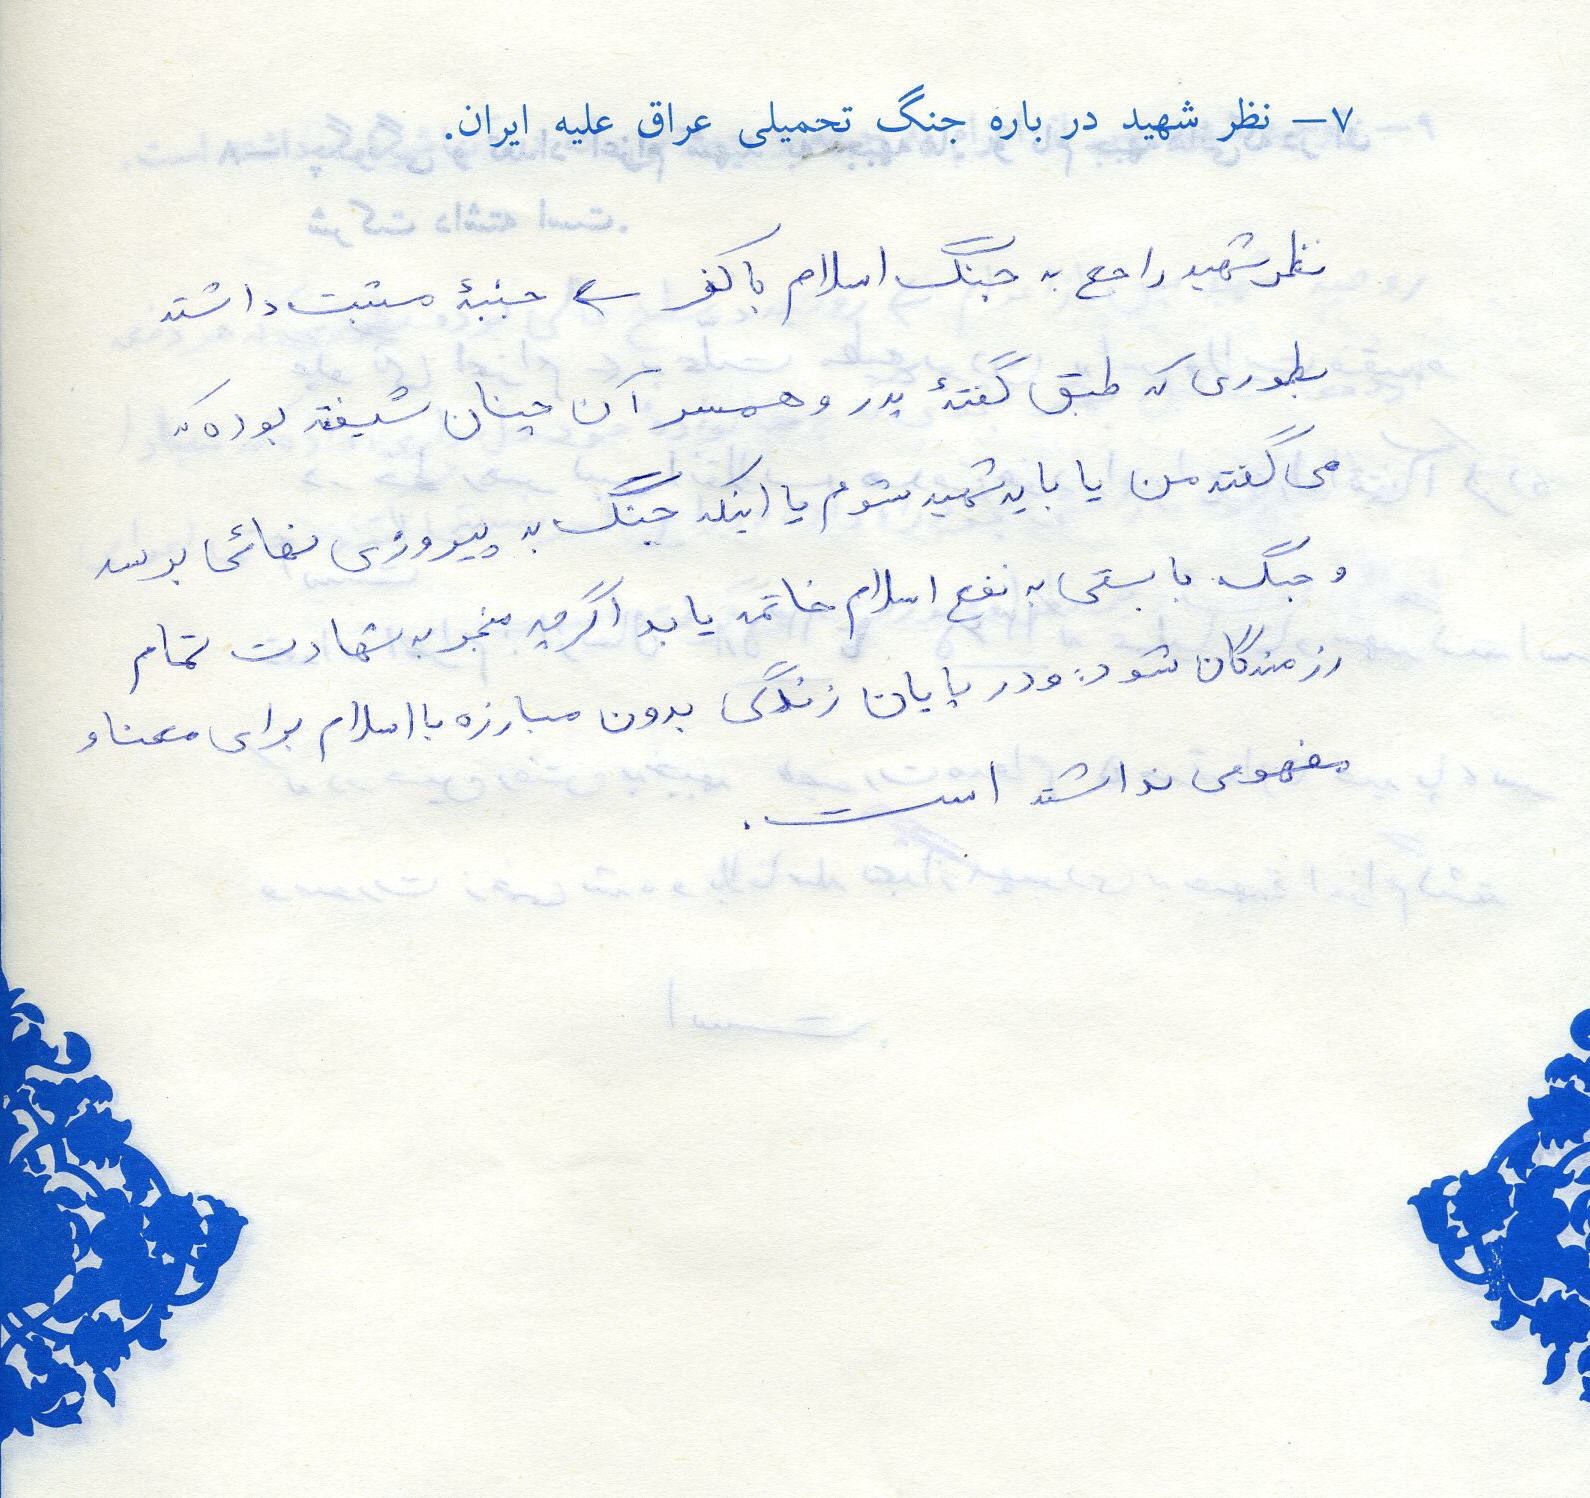 ۷– نظر شهید در باره جنگ تحمیلی عراق علیه ایران.
نظر شهید راجع به جنگ اسلام با کفر جنبهٔ مثبت داشته
بطوری که طبق گفتهٔ پدر و همسر آن چنان شیفته بوده که
می گفته من یا باید شهید شوم یا اینکه جنگ به پیروزی نهائی برسد
و جنگ بایستی به نفع اسلام خاتمه یابد اگرچه منجر به شهادت تمام
رزمندگان شود. و در پایان زندگی بدون مبارزه با اسلام برای معنا و
مفهومی نداشته است.